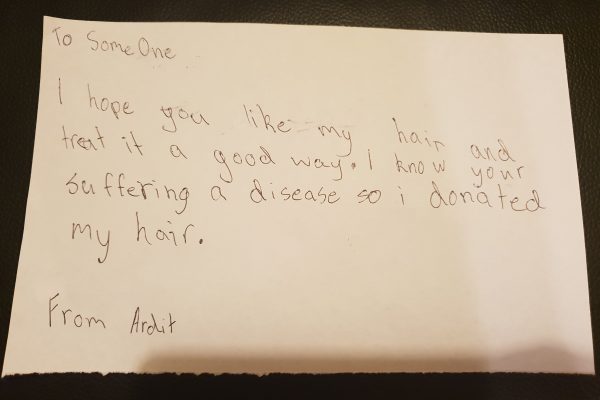 To SomeOne
I hope you like my hair and
treat it a good way. I know your
suffering a disease so i donated
my hair.
From Ardit